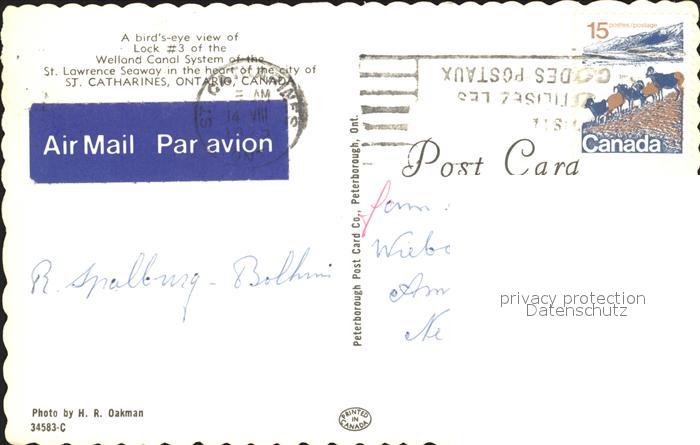 A bird's-eye view of
Lock #3 of the
Welland Canal System of the
St. Lawrence Seaway in the heart of the city of
ST. CATHARINES, ONTARIO, CANADA
AM
14 VIII
15 postes/postage
Canada
UTILISEZ LES
CODES POSTAUX
Air Mail Par avion
Post Card
Peterborough Post Card Co., Peterborough, Ont.
Fam
Am
Ne
R. Spalburg - Bolhuis
privacy protection
Datenschutz
Photo by H. R. Oakman
34583-C
PRINTED IN CANADA